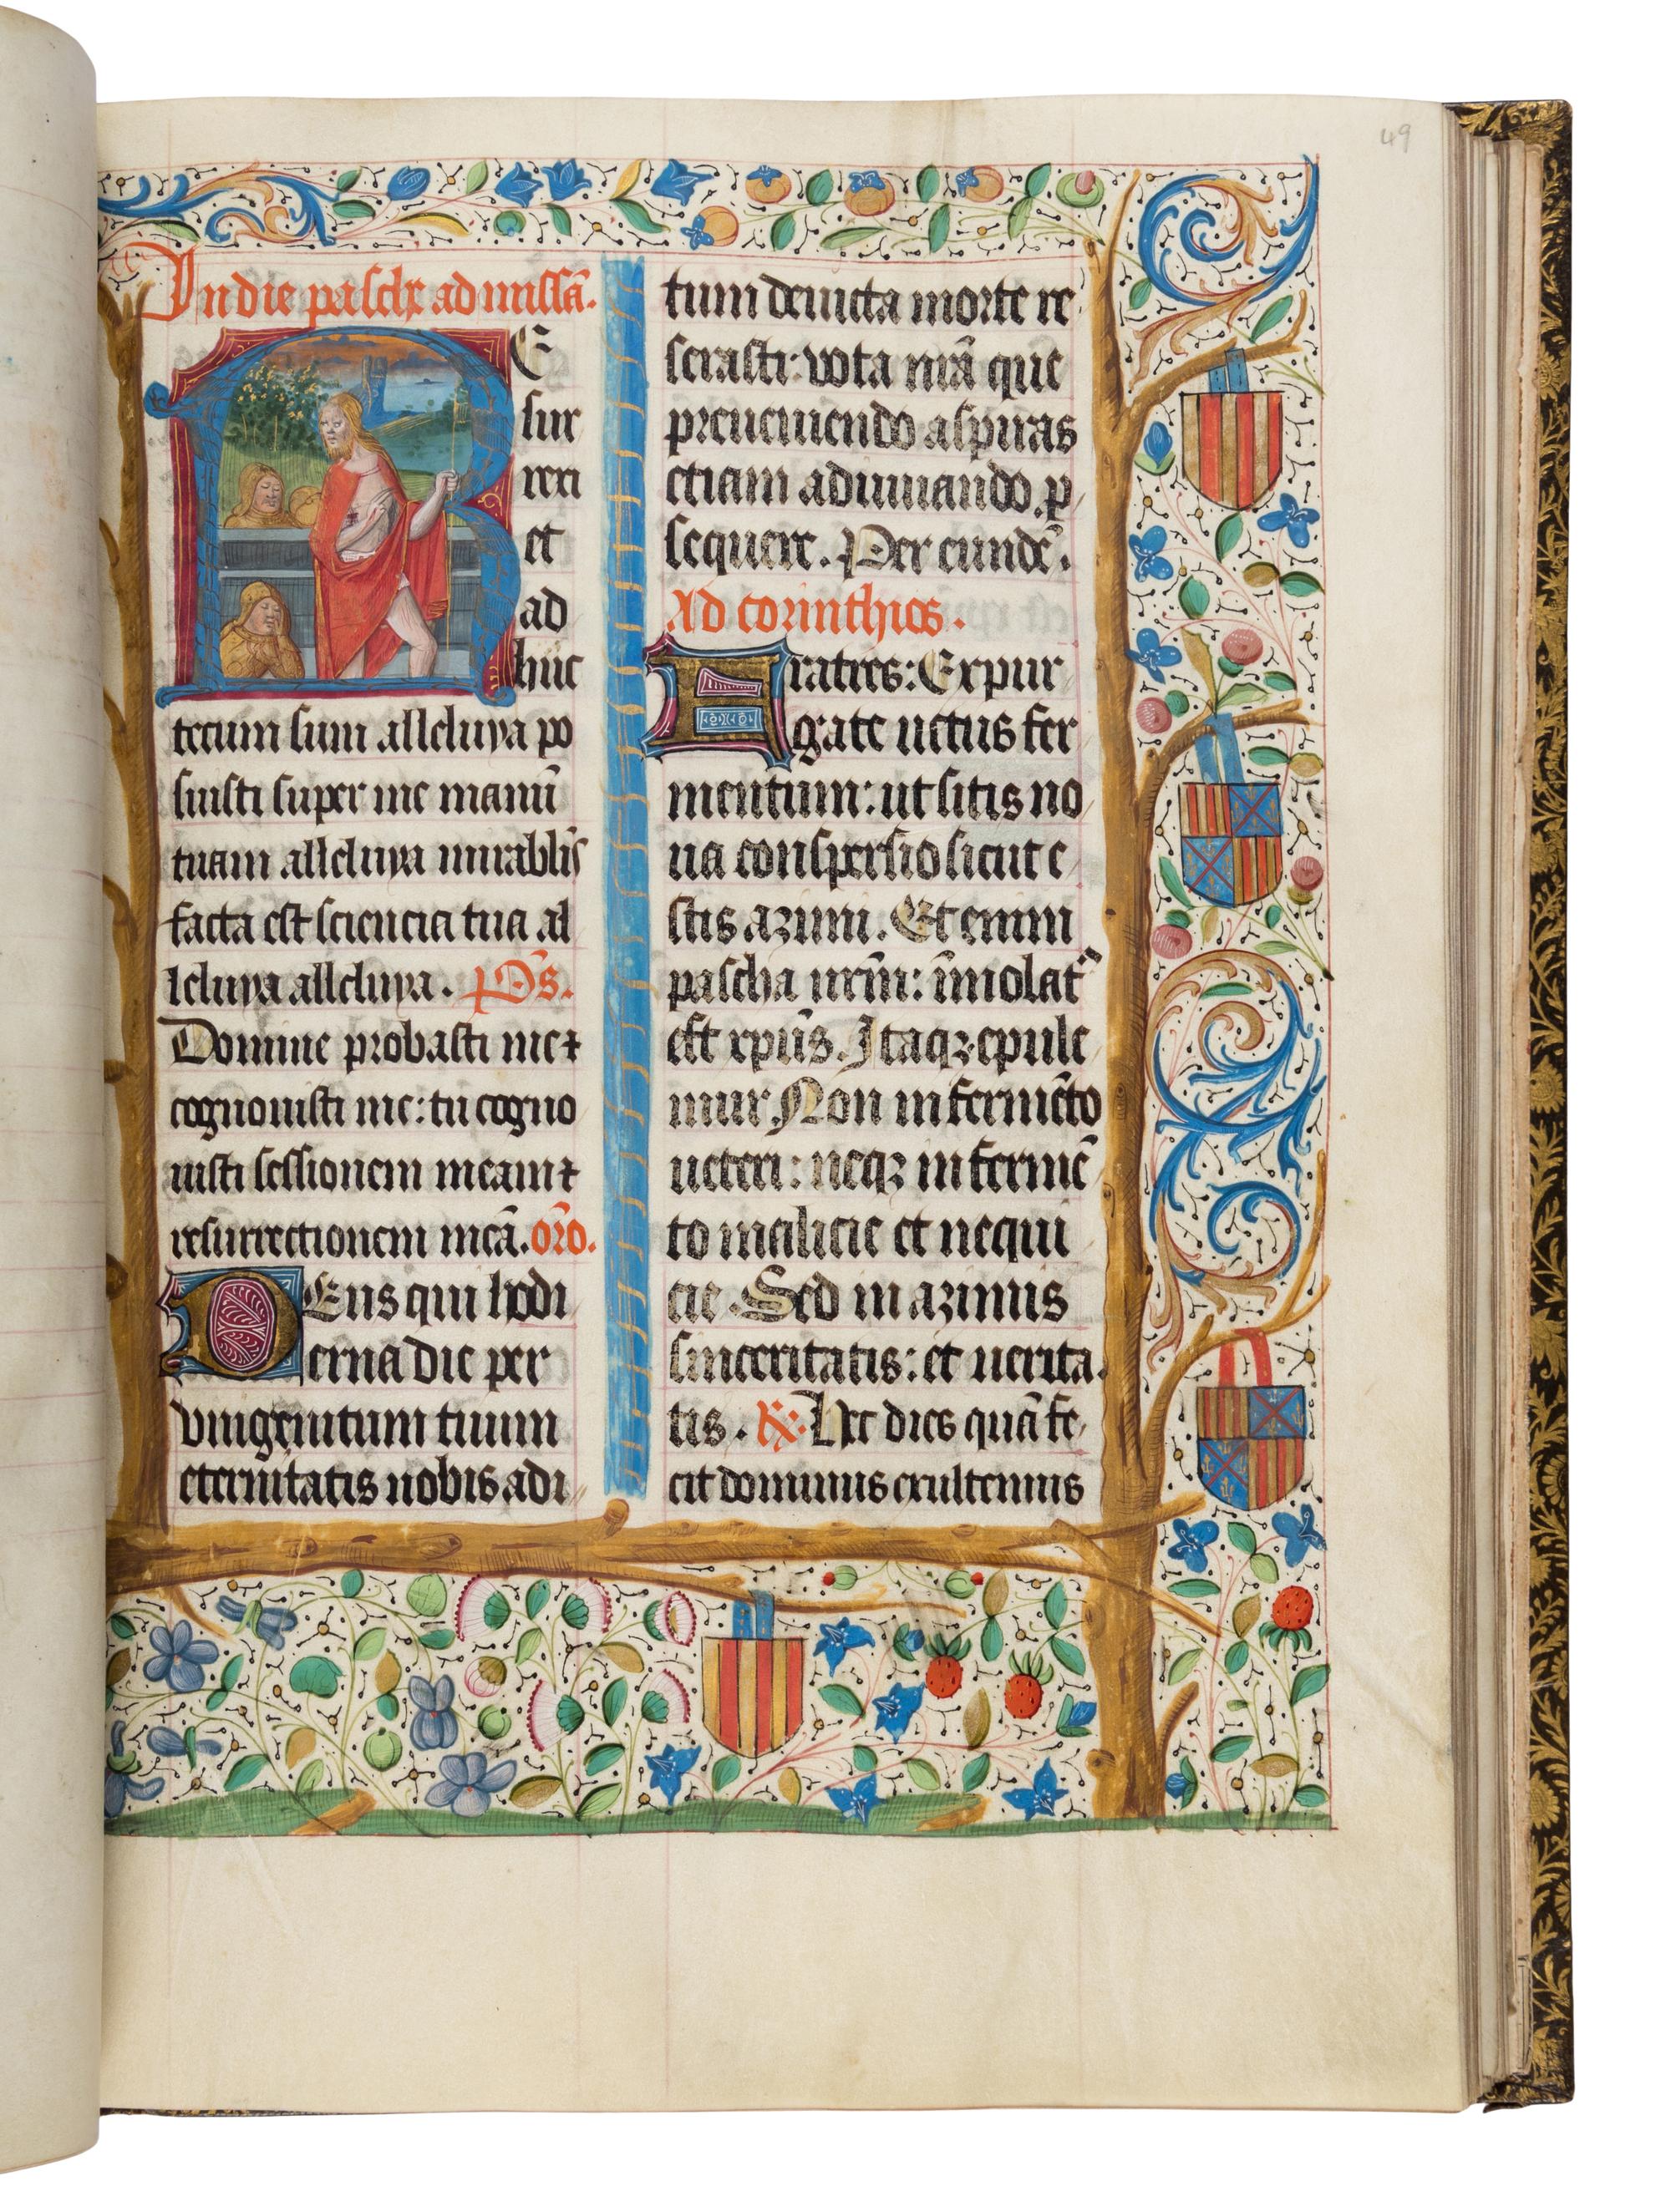 49
In die pasche ad missā.
RE
sur
rexi
et
ad
huc
tecum sum alleluya po
suisti super me manū
tuam alleluya mirabilis
facta est sciencia tua al
leluya alleluya. P̄s.
Domine probasti me ⁊
cognouisti me: tu cogno
uisti sessionem meam ⁊
resurrectionem meā. or̄o.
DEus qui hodi
erna die per
vnigenitum tuum
eternitatis nobis adi
tum deuicta morte re
serasti: vota nr̄a que
preueniendo aspiras
etiam adiuuando. p
sequere. Per eundē.
Ad corinthios.
Fratres: Expur
gate uetus fer
mentum: ut sitis no
ua conspersio sicut e
stis azimi. Et enim
pascha nr̄m: īmolatᵘʳ
est xpūs. Itaqꝫ epule
mur Non in fermēto
ueteri: neqꝫ in fermē
to malicie et nequi
cie. Sed in azimis
sinceritatis: et uerita
tis. ℟: Hec dies quā fe
cit dominus exultemus